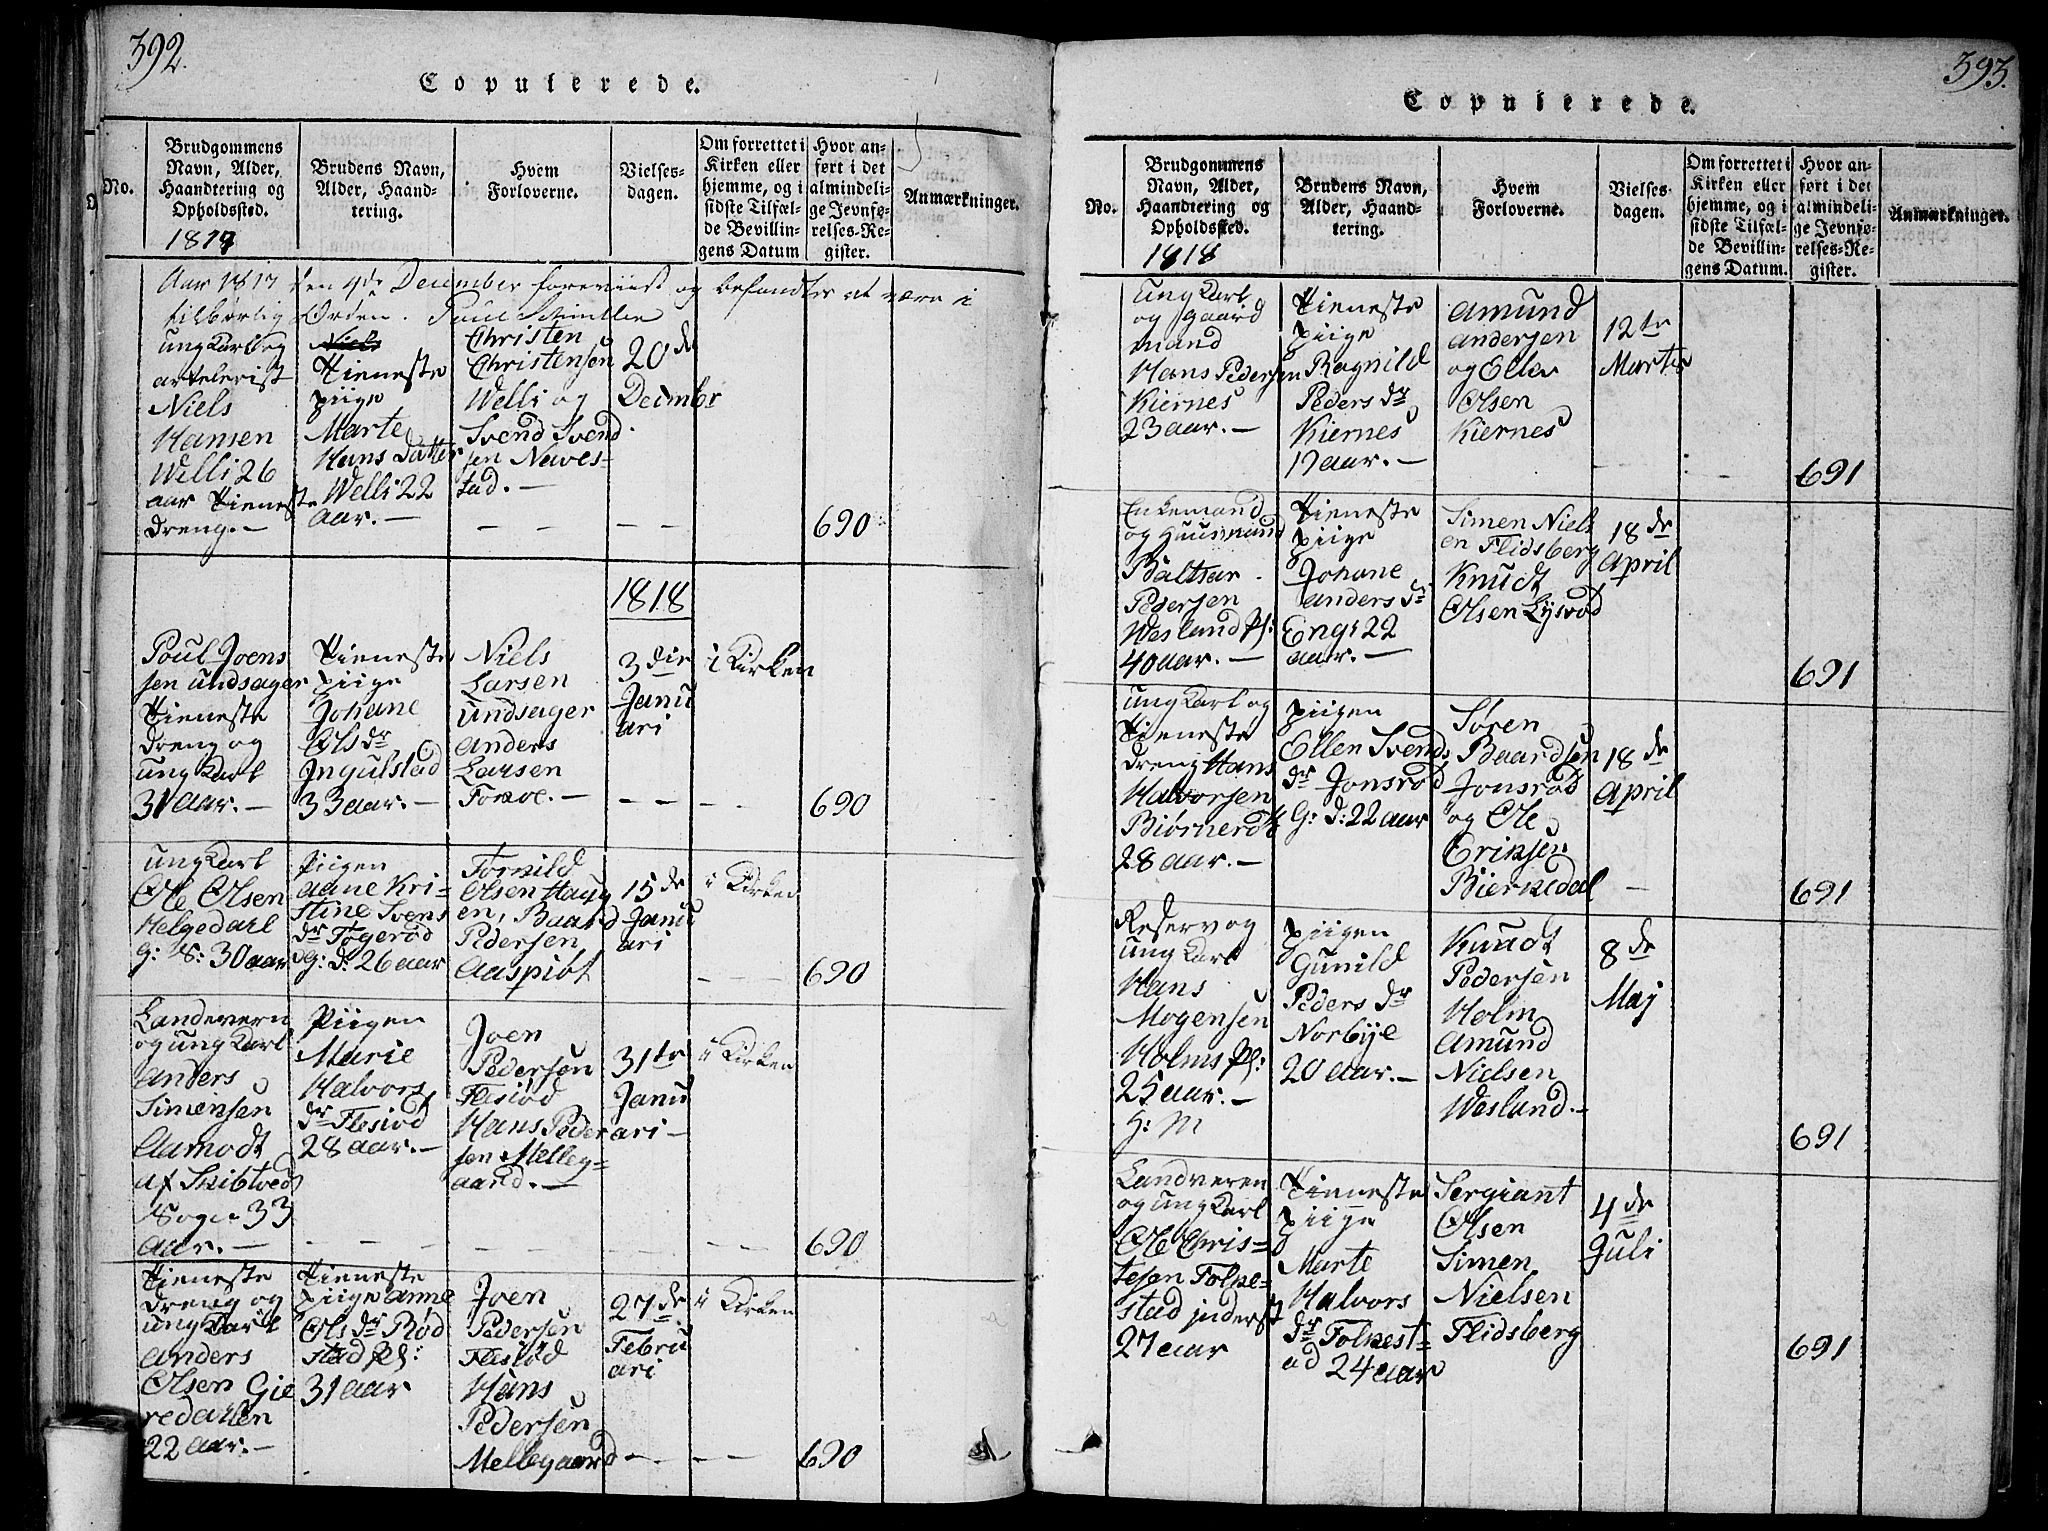 392.
Copulerede.
No.
Brudgommens
Navn, Alder,
Haandtering og
Opholdssted.
1817
Brudens Navn,
Alder, Haand-
tering.
Hvem
Forloverne.
Vielses-
dagen.
Om forrettet i
Kirken eller
hjemme, og i
sidste Tilfæl-
de Bevillin-
gens Datum
Hvor an-
ført i det
almindeli-
ge Jevnfø-
relses-Re-
gister.
Anmærkninger.
Aar 1817 den 4de December foreviist og befandtes at være i
tilbørlig Orden. Paul
ungKarl og
artelerist
Niels
Hansen
Welli 26
aar Tieneste
dreng. —
Niels
Tieneste
piige
Marte
Hans Datter
Welli 22
aar. —
Christen
Christensen
Welli og
Svend Svend
sen Naves-
tad. —
20de
Decembr
690
1818
Poul Joens
sen undsager
Tieneste
dreng og
ung Karl
31 aar. —
Tieneste
piige
Johane
Ols dr
Ingulstad
33 aar. —
Niels
Larsen
Undsager
Anders
Larsen
Toraoe. —
3die
Janu
ari
i Kirken
690
ungKarl
Ole Olsen
Helgedarl
G: S: 30 aar
Piigen
Aane Kri-
stine Svens
dr Togerød
G: d: 26 aar
Tornild
Olsen Haug
en, Baard
Pedersen
Aaspiøt
15de
Janu
ari
i Kirken
690
Landevern
og ungKarl
Anders
Simensen
Aamodt
af Skibtved
Sogn 33
aar. —
Piigen
Marie
Halvors
dr Flesiød
28 aar. —
Joen
Pedersen
Flesiød
Hans Peder
sen Melleg-
aard. —
31te
Janu
ari —
i Kirken
690
Tieneste
dreng og
ung Karl
Anders
Olsen Gie
redarlen
22 aar. —
Tieneste
piige Anne
Ols dr Rød
stad Pl:
31 aar
Joen
Pedersen
Flesiød
Hans
Pedersen
Mellegaard
27de
Febru
ari
i Kirken
690
393.
Copulerede.
No.
Brudgommens
Navn, Alder,
Haandtering og
Opholdssted.
1818
Brudens Navn,
Alder, Haand-
tering.
Hvem
Forloverne.
Vielses
dagen.
Om forrettet i
Kirken eller
hjemme, og i
sidste Tilfæl-
de Bevillin-
gens Datum.
Hvor an-
ført i det
almindeli-
ge Jevnfø-
relses-Re-
gister.
Anmærkninger.
ungKarl
og gaard
mand
Hans Pedersen
Kiernes
23 aar. —
Tieneste
piige
Ragnild
Peders dr
Kiernes
17 aar. —
Amund
Andersen
og Ellev
Olsen
Kiernes
12te
Martis
691
Enkemand
og Huusmand
Baltsar
Pedersen
Wesland Pl:
40 aar. —
Tieneste
piige
Johane
Anders dr
Eng: 22
aar. —
Simen Niels
en Flidsberg
Knudt
Olsen Lysrød
18de
April
691
ungKarl og
Tieneste
dreng Hans
Halvorsen
Biørnerødt
28 aar. —
piigen
Ellen Svends
dr Jonsrød
G: d: 22 aar
Søren
Baardsen
Jonsrød
og Ole
Eriksen
Bierkedal
18de
April
691
Reserv og
ung Karl
Hans
Mogensen
Holms Pl:
25 aar. —
G: M
piigen
Gunild
Peders dr
Norbye
20 aar. —
Knudt
Pedersen
Holm
Amund
Nielsen
Wesland. —
8de
Maj
691
Landveren
og ungKarl
Ole Chris-
tesen Folke-
stad inderst
27 aar
Tieneste
piige
Marte
Halvors
dr Folkest-
ad 24 aar
Sergiant
Olsen
Simen
Nielsen
Flidsberg
4de
Juli
691